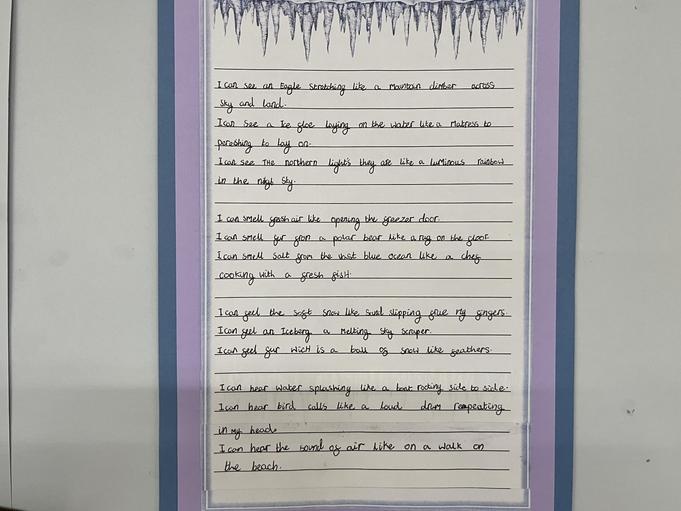 I can see an Eagle Stretching like a Mountain climber across
sky and land.
I can see a Ice floe laying on the water like a Matress to
perishing to lay on.
I can see THe northern light's they are like a luminous rainbow
in the night sky.
I can smell fresh air like opening the freezer door.
I can smell fur from a polar bear like a rug on the floor
I can smell Salt from the vast blue ocean like a chef
cooking with a fresh fish.
I can feel the soft snow like sand slipping frue my fingers.
I can feel an Iceberg a Melting Sky scraper.
I can feel fur wich is a ball of snow like feathers.
I can hear water splashing like a boat rocking side to side.
I can hear bird calls like a loud drum repeating
in my head.
I can hear the sound of air like on a walk on
the beach.